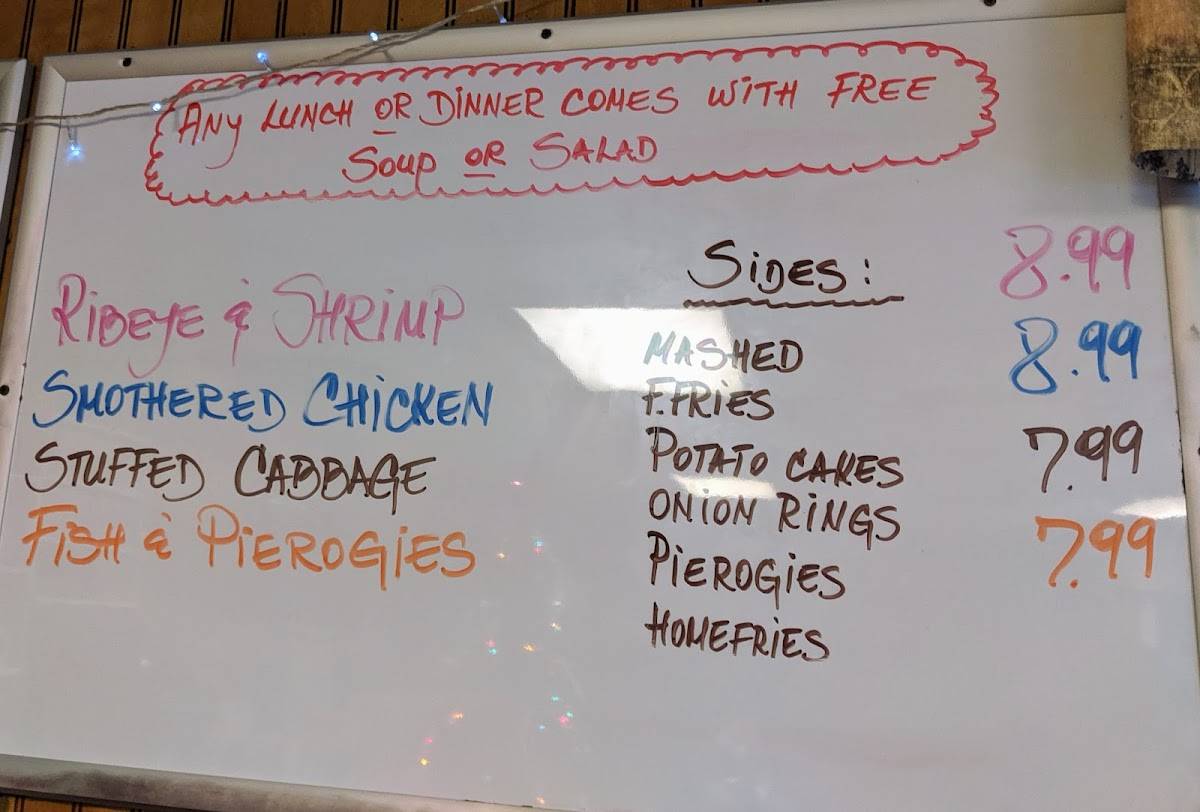 ANY LUNCH OR DINNER COMES WITH FREE
SOUP OR SALAD
RIBEYE & SHRIMP
SMOTHERED CHICKEN
STUFFED CABBAGE
FISH & PIEROGIES
SIDES:
MASHED
F.FRIES
POTATO CAKES
ONION RINGS
PIEROGIES
HOMEFRIES
8.99
8.99
7.99
7.99